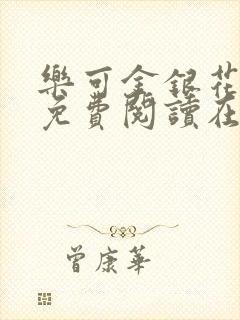 樂可金銀花
免費閱讀在
曾康華